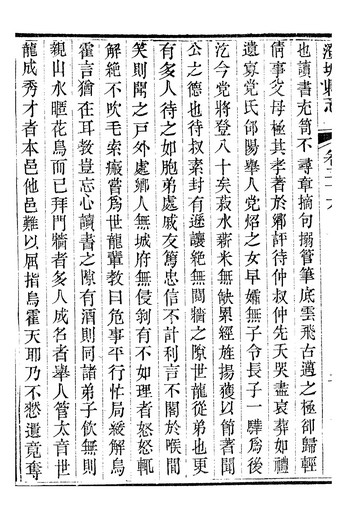 澄城縣志 卷二十六
也讀書充笥不尋章摘句搦管筆底雲飛古邁之極卻歸輕
倩事父母極其孝著於鄉評待仲叔仲先夭哭盡哀葬如禮
遺寡党氏郃陽舉人党炤之女早孀無子令長子一驊爲後
迄今党將登八十矣菽水薪米無缺累經旌揚獲以節著聞
公之德也待叔素封有遜讓絕無鬩牆之隙世龍從弟也更
有多人待之如胞弟處戚友篤忠信不計利言不閣於喉間
笑則聞之戶外處鄉人無城府無侵刻有不如理者怒怒輒
解絕不吹毛索瘢嘗爲世龍輩教曰危事平行忙局緩解烏
霍言猶在耳敢豈忘心讀書之隙有酒則同諸弟子飲無則
親山水睚花鳥而已拜門牆者多人成名者舉人管太音世
龍成秀才者本邑他邑難以屈指烏霍天耶乃不憖遺竟奪